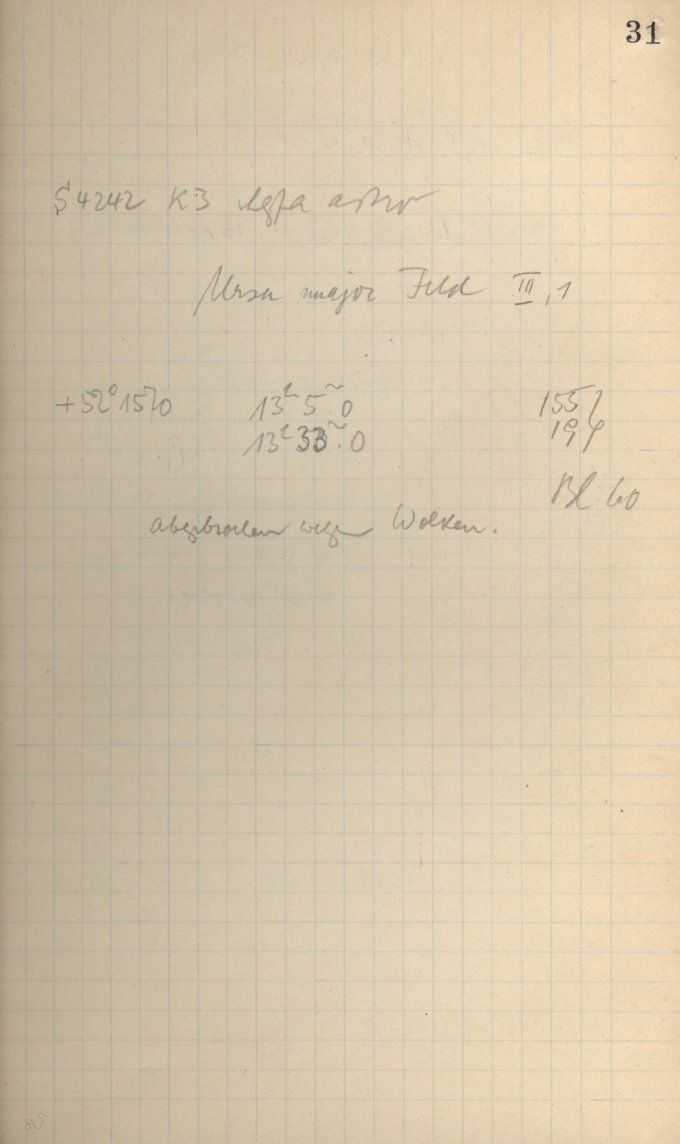 31
S 4242 K3 Agfa astro
Ursa major Feld III, 1
+52° 15.'0 13h 5m.0 155
13h 33m.0 19
Bl. 60
abgebrochen wegen Wolken.